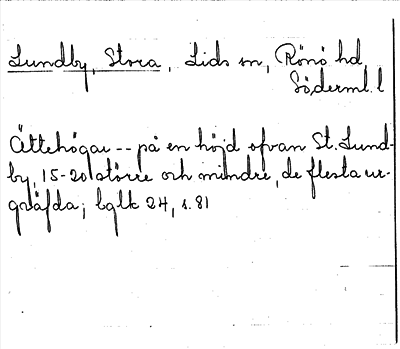 Lundby, Stora, Lids sn, Rönö hd
Söderml. l
Ättehögar -- på en höjd ofvan St. Lund-
by, 15-20 större och mindre, de flesta ur-
gräfda; bglk 24, s. 81